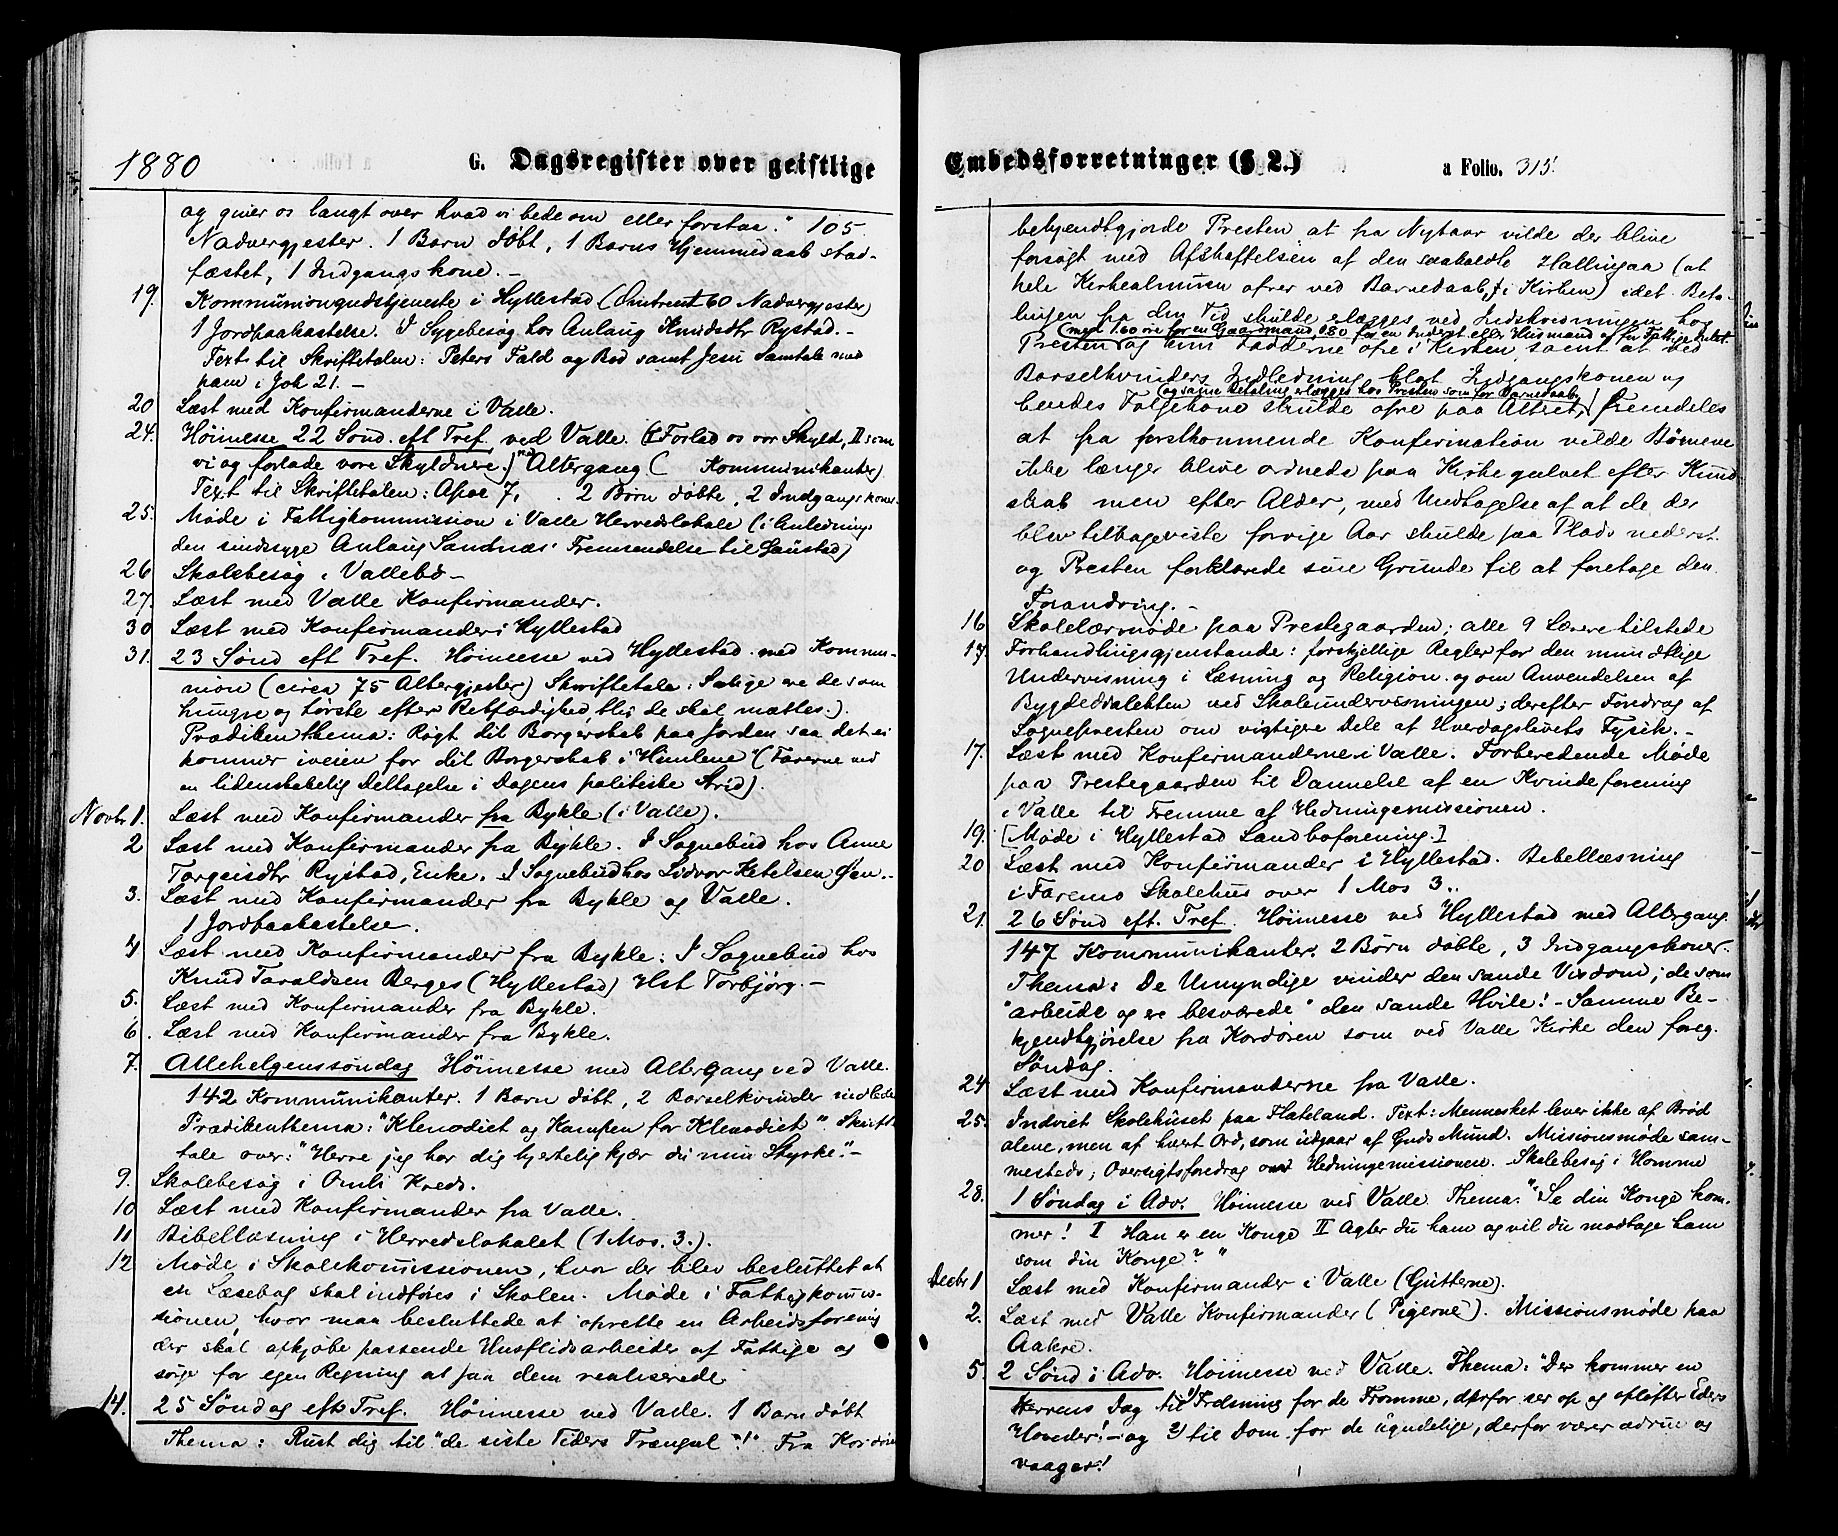 1880
G. Dagsregister over geistlige
og giver os langt over hvad vi bede om eller forstaa." 105
Nadvergjester. 1 Barn døbt, 1 Barns Hjemmedaab stad-
fæstet, 1 Indgangskone. -
19. Kommuniongudstjeneste i Hyllestad (Omtrent 60 Nadvergjester)
1 Jordpaakastelse. I Sygebesøg hos Anlaug Knudsdtr Rystad. -
Text til Skriftetalen: Peters Fald og Bod samt Jesu Samtale med
ham i Joh 21. -
20 Læst med Konfirmanderne i Valle.
24. Høimesse 22 Sønd. eft Tref. ved Valle. (I Forlad os vor Skyld, II som
vi og forlade vore Skyldnere.) Altergang ( Kommunikanter)
Text til Skriftetalen: Apoc 7. 2 Børn døbte, 2 Indgangskoner
25. Møde i Fattigkommission i Valle Herredslokale (i Anledning
den sindssyge Anlaug Sandnæs' Fremsendelse til Gaustad)
26 Skolebesøg i Vallebø -
27. Læst med Valle Konfirmander.
30 Læst med Konfirmander i Hyllestad
31. 23 Sønd eft Tref. Høimesse ved Hyllestad med Kommu-
nion (circa 75 Altergjester) Skriftetale: Salige ere de som
hungre og tørste efter Retfærdighed, thi de skal mættes.).
Prædikenthema: Røgt dit Borgerskab paa Jorden saa det ei
kommer iveien for dit Borgerskab i Himlene" (Farerne ved
en lidenskabelig Deltagelse i Dagens politiske Strid).
Novbr 1. Læst med Konfirmander fra Bykle (i Valle).
2 Læst med Konfirmander fra Bykle. I Sognebud hos Anne
Torgeisdtr Rystad, Enke. I Sognebud hos Lidvor Ketelsen Øen. -
3. Læst med Konfirmander fra Bykle og Valle.
1 Jordpaakastelse.
4 Læst med Konfirmander fra Bykle. I Sognebud hos
Knud Taraldsen Berges (Hyllestad) Hst Torbjørg. -
5. Læst med Konfirmander fra Bykle.
6. Læst med Konfirmander fra Bykle.
7. Allehelgenssøndag Høimesse med Altergang ved Valle.
142 Kommunikanter. 1 Barn døbt, 2 Barselkvinder indledte
Prædikenthema: "Klenodiet og Kampen for Klenodiet" Skrifte
tale over: "Herre jeg har dig hjertelig kjær du min Styrke". -
9. Skolebesøg i Omli Kreds.
10 Læst med Konfirmander fra Valle.
11 Bibellæsning i Herredslokalet (1 Mos. 3.).
12 Møde i Skolekommissionen, hvor der blev besluttet at
en Læsebog skal indføres i Skolen. Møde i Fattigkommis-
sionen, hvor man besluttede at oprette en Arbeidsforening
der skal afkjøbe passende Husflidsarbeider af Fattige og
sørge for egen Regning at faa dem realiserede
14. 25 Søndag eft Tref. Høimesse ved Valle. 1 Barn døbt
Thema: Rust dig til "de siste Tiders Trængsel"! Fra Kordøren
Embedsforretninger (§ 2.)
a Folio. 315.
bekjendtgjorde Presten at fra Nytaar vilde der blive
forsøgt med Afskaffelsen af den saakaldte Hallingaa (at
hele Kirkealmuen ofrer ved Barnedaab i Kirken) idet Beta-
lingen fra den Tid skulde erlægges ved Indskrivningen hos
(med 1.60 øre for en Gaardmand, 0.80 for en Inderst eller Husmand
Presten og kun Fadderne ofre i Kirken samt at ved
Barselkvinders Indledning blot Indgangskonen og
(og samme Betaling erlægges hos Presten som for Barnedaab)
hendes Følgekone skulde ofre paa Altret, fremdeles
at fra førstkommende Konfirmation vilde Børnene
ikke længer blive ordnede paa Kirkegulvet efter Kund-
skab men efter Alder, med Undtagelse af at de der
blev tilbageviste forrige Aar skulde faa Plads nederst
og Presten forklarede sine Grunde til at foretage den
Forandring. -
16 Skolelærermøde paa Prestegaarden; alle 9 Lærere tilstede
17. Forhandlingsgjenstande: forskjellige Regler for den mundtlige
Undervisning i Læsning og Religion og om Anvendelsen af
Bygdedialekten ved Skoleundervisningen; derefter Foredrag af
Sognepresten om vigtigere Dele af Hverdagslivets Fysik. -
17. Læst med Konfirmanderne i Valle. Forberedende Møde
paa Prestegaarden til Dannelse af en Kvindeforening
i Valle til Fremme af Hedningemissionen.
19. [Møde i Hyllestad Landboforening.]
20 Læst med Konfirmander i Hyllestad. Bibellæsning
i Farenes Skolehus over 1 Mos 3..
21. 26 Sønd eft. Tref. Høimesse ved Hyllestad med Altergang
147 Kommunikanter. 2 Børn døbte, 3 Indgangskoner.
Thema: De Umyndige vinder den sande Visdom; de som
"arbeide og ere besværede" den sande Hvile! - Samme Be-
kjendtgjørelse fra Kordøren som ved Valle Kirke den foreg.
Søndag.
24. Læst med Konfirmanderne fra Valle.
25. Indviet Skolehuset paa Flateland. Text: Mennesket lever ikke af Brød
alene, men af hvert Ord, som udgaar af Guds Mund. Missionsmøde sam-
mesteds; Oversigtsforedrag over Hedningemissionen. Skolebesøg i Homme
28. 1 Søndag i Adv. Høimesse ved Valle Thema: "Se din Konge kom-
mer! I Han er en Konge II Agter du ham og vil du modtage ham
som din Konge?"
Decbr 1 Læst med Konfirmander i Valle (Gutterne).
2. Læst med Valle Konfirmander (Pigerne). Missionsmøde paa
Aakre.
5. 2 Sønd i Adv. Høimesse ved Valle. Thema: "Der kommer en
Herrens Dag 1) til Frelsning for de Fromme, derfor ser op og opløfter Eders
Hoveder! - og 2) til Dom for de ugudelige, derfor værer ædrue og
vaager!